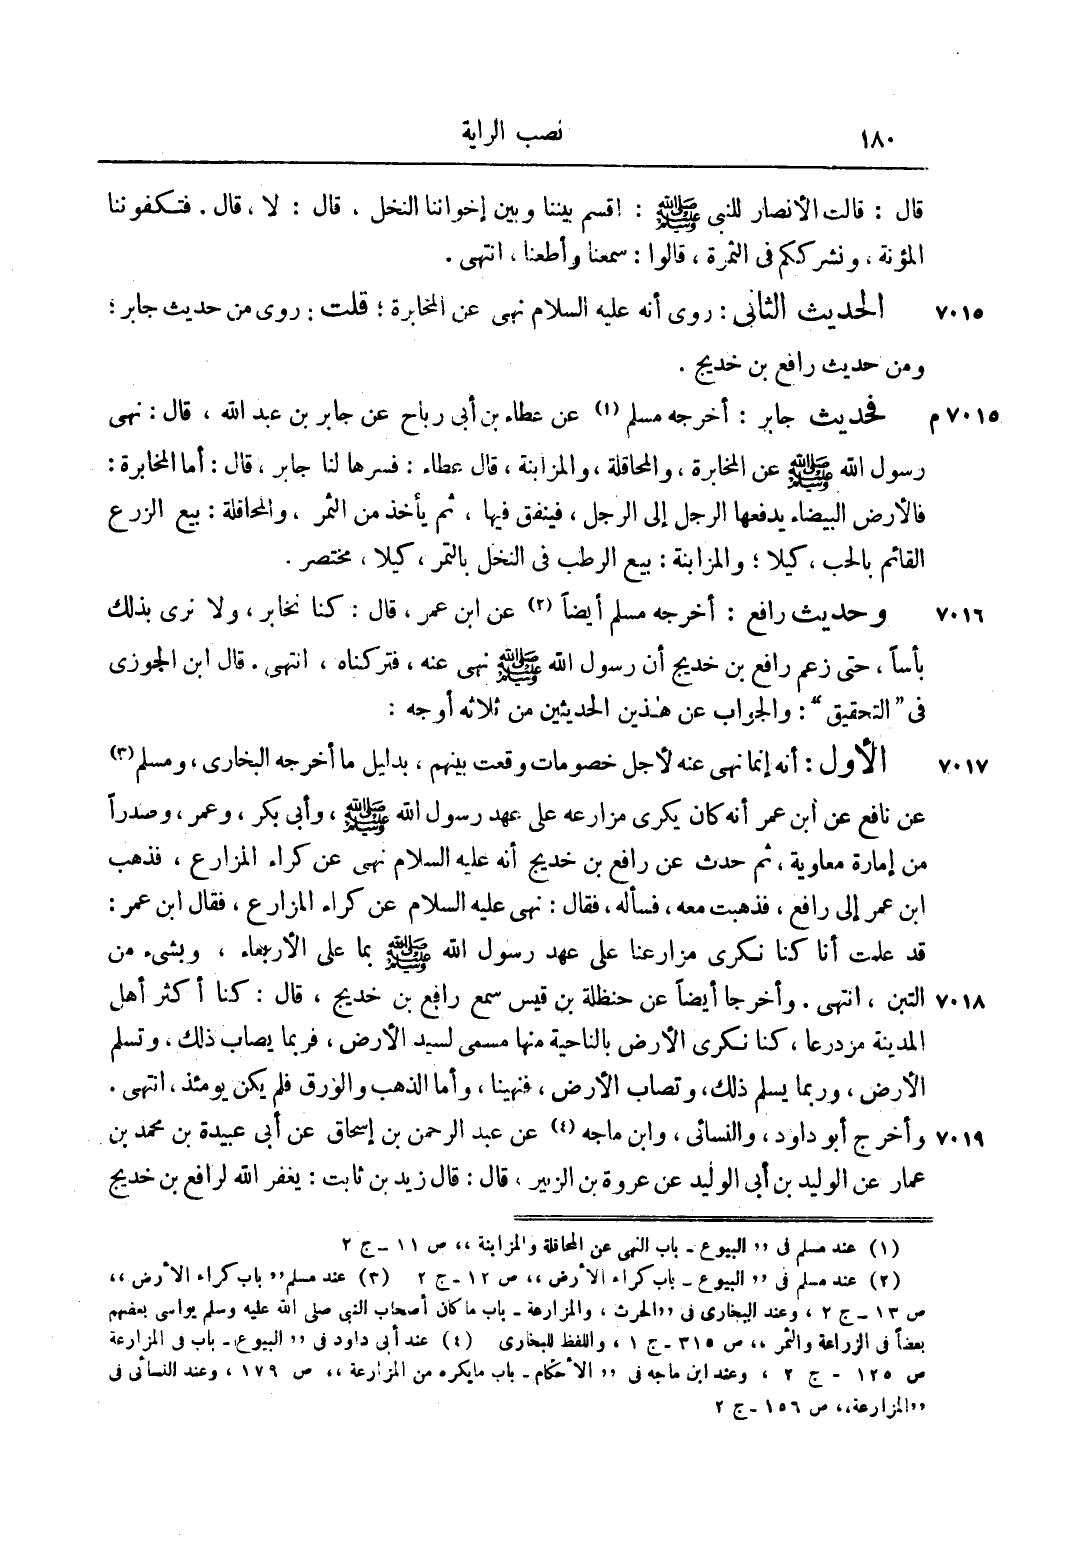 ١٨٠ نصب الراية
قال : قالت الأنصار للنبى ﷺ : اقسم بيننا وبين إخواننا النخل ، قال : لا ، قال . فتكفوننا
المؤنة ، ونشرككم فى الثمرة ، قالوا : سمعنا وأطعنا ، انتهى .
٧٠١٥ الحديث الثانى : روى أنه عليه السلام نهى عن المخابرة ؛ قلت : روى من حديث جابر ؛
ومن حديث رافع بن خديج .
٧٠١٥ م فحديث جابر : أخرجه مسلم (١) عن عطاء بن أبى رباح عن جابر بن عبد الله ، قال : نهى
رسول الله ﷺ عن المخابرة ، والمحاقلة ، والمزابنة ، قال عطاء : فسرها لنا جابر ، قال : أما المخابرة :
فالأرض البيضاء يدفعها الرجل إلى الرجل ، فينفق فيها ، ثم يأخذ من الثمر ، والمحاقلة : بيع الزرع
القائم بالحب ، كيلا ؛ والمزابنة : بيع الرطب فى النخل بالتمر ، كيلا ، مختصر .
٧٠١٦ وحديث رافع : أخرجه مسلم أيضاً (٢) عن ابن عمر ، قال : كنا نخابر ، ولا نرى بذلك
بأساً ، حتى زعم رافع بن خديج أن رسول الله ﷺ نهى عنه ، فتركناه ، انتهى . قال ابن الجوزى
فى " التحقيق " : والجواب عن هذين الحديثين من ثلاثه أوجه :
٧٠١٧ الأول : أنه إنما نهى عنه لأجل خصومات وقعت بينهم ، بدليل ما أخرجه البخارى ، ومسلم (٣)
عن نافع عن ابن عمر أنه كان يكرى مزارعه على عهد رسول الله ﷺ ، وأبى بكر ، وعمر ، وصدراً
من إمارة معاوية ، ثم حدث عن رافع بن خديج أنه عليه السلام نهى عن كراء المزارع ، فذهب
ابن عمر إلى رافع ، فذهبت معه ، فسأله ، فقال : نهى عليه السلام عن كراء المزارع ، فقال ابن عمر :
قد علمت أنا كنا نكرى مزارعنا على عهد رسول الله ﷺ بما على الأربعاء ، وبشىء من
٧٠١٨ التبن ، انتهى . وأخرجا أيضاً عن حنظلة بن قيس سمع رافع بن خديج ، قال : كنا أكثر أهل
المدينة مزدرعا ، كنا نكرى الأرض بالناحية منها مسمى لسيد الأرض ، فربما يصاب ذلك ، وتسلم
الأرض ، وربما يسلم ذلك ، وتصاب الأرض ، فنهينا ، وأما الذهب والورق فلم يكن يومئذ ، انتهى .
٧٠١٩ وأخرج أبو داود ، والنسائى ، وابن ماجه (٤) عن عبد الرحمن بن إسحاق عن أبى عبيدة بن محمد بن
عمار عن الوليد بن أبى الوليد عن عروة بن الزبير ، قال : قال زيد بن ثابت : يغفر الله لرافع بن خديج
(١) عند مسلم فى ,, البيوع ـ باب النهى عن المحاقلة والمزابنة ،، ص ١١ ـ ج ٢
(٢) عند مسلم فى ,, البيوع ـ باب كراء الأرض ،، ص ١٢ ـ ج ٢ (٣) عند مسلم ,, باب كراء الأرض ،،
ص ١٣ ـ ج ٢ ، وعند البخارى فى ,, الحرث ، والمزارعة ـ باب ما كان أصحاب النبى صلى الله عليه وسلم يواسى بعضهم
بعضاً فى الزراعة والثمر ،، ص ٣١٥ ـ ج ١ ، واللفظ للبخارى (٤) عند أبى داود فى ,, البيوع ـ باب فى المزارعة
ص ١٢٥ ـ ج ٢ ، وعند ابن ماجه فى ,, الأحكام ـ باب مايكره من المزارعة ،، ص ١٧٩ ، وعند النسائى فى
,, المزارعة ،، ص ١٥٦ ـ ج ٢